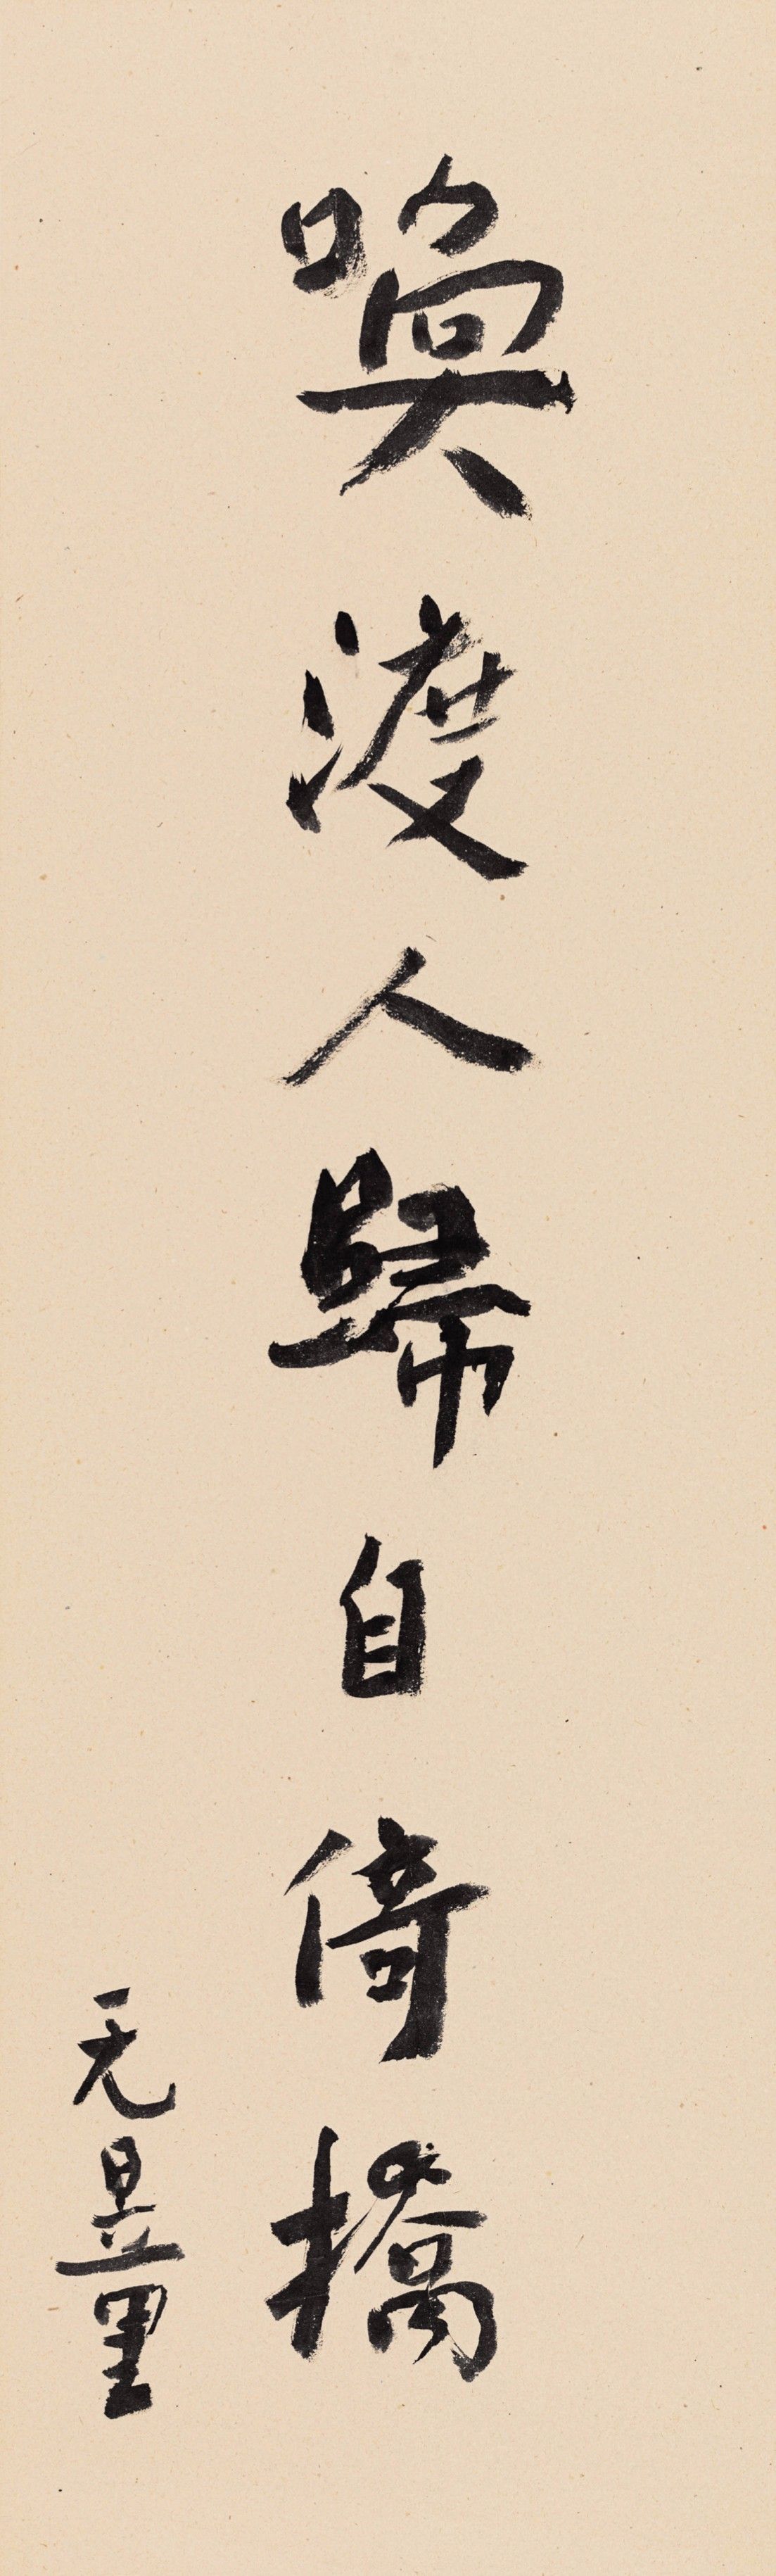 喚渡人歸自倚橋
无量里